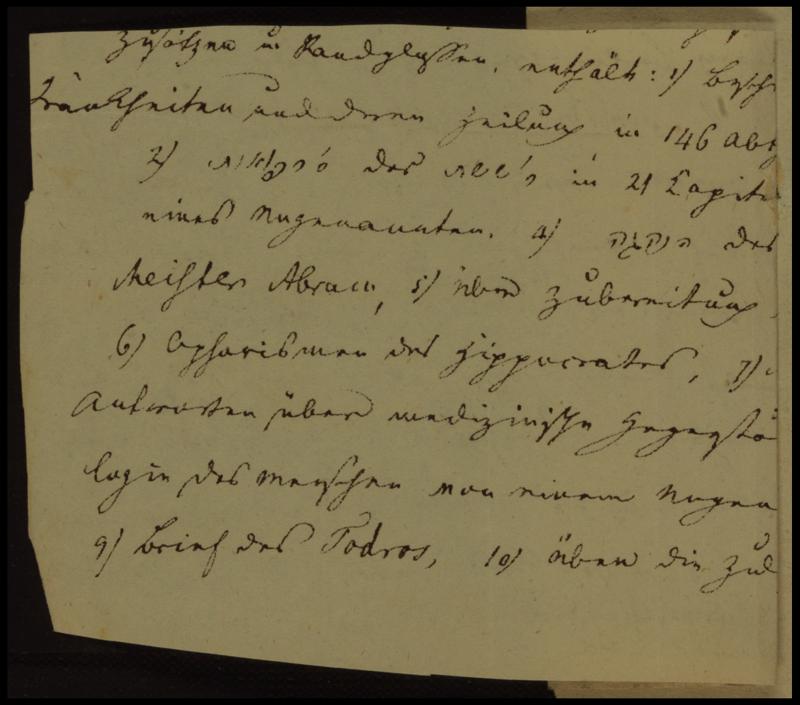 Zusätzen u Randglossen. enthält: 1) Besch
Krankheiten und deren Heilung in 146 Abs
2) des in 21 Capite
eines Ungenannten. 4) des
Meister Abram, 5) über Zubereitung
6) Aphorismen des Hippocrates, 7)
Antworten über medizinische Gegenstä
logie des Menschen von einem Ungen
9) Brief des Todros, 10) über die Zub